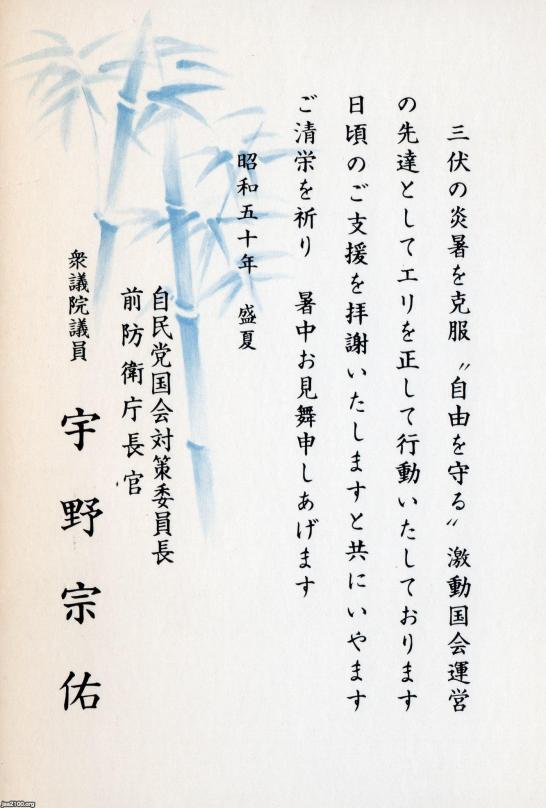 三伏の炎暑を克服〝自由を守る〟激動国会運営
の先達としてエリを正して行動いたしております
日頃のご支援を拝謝いたしますと共にいやます
ご清栄を祈り　暑中お見舞申しあげます
昭和五十年　盛夏
自民党国会対策委員長
前防衛庁長官
衆議院議員　宇野宗佑
jaa2100.org